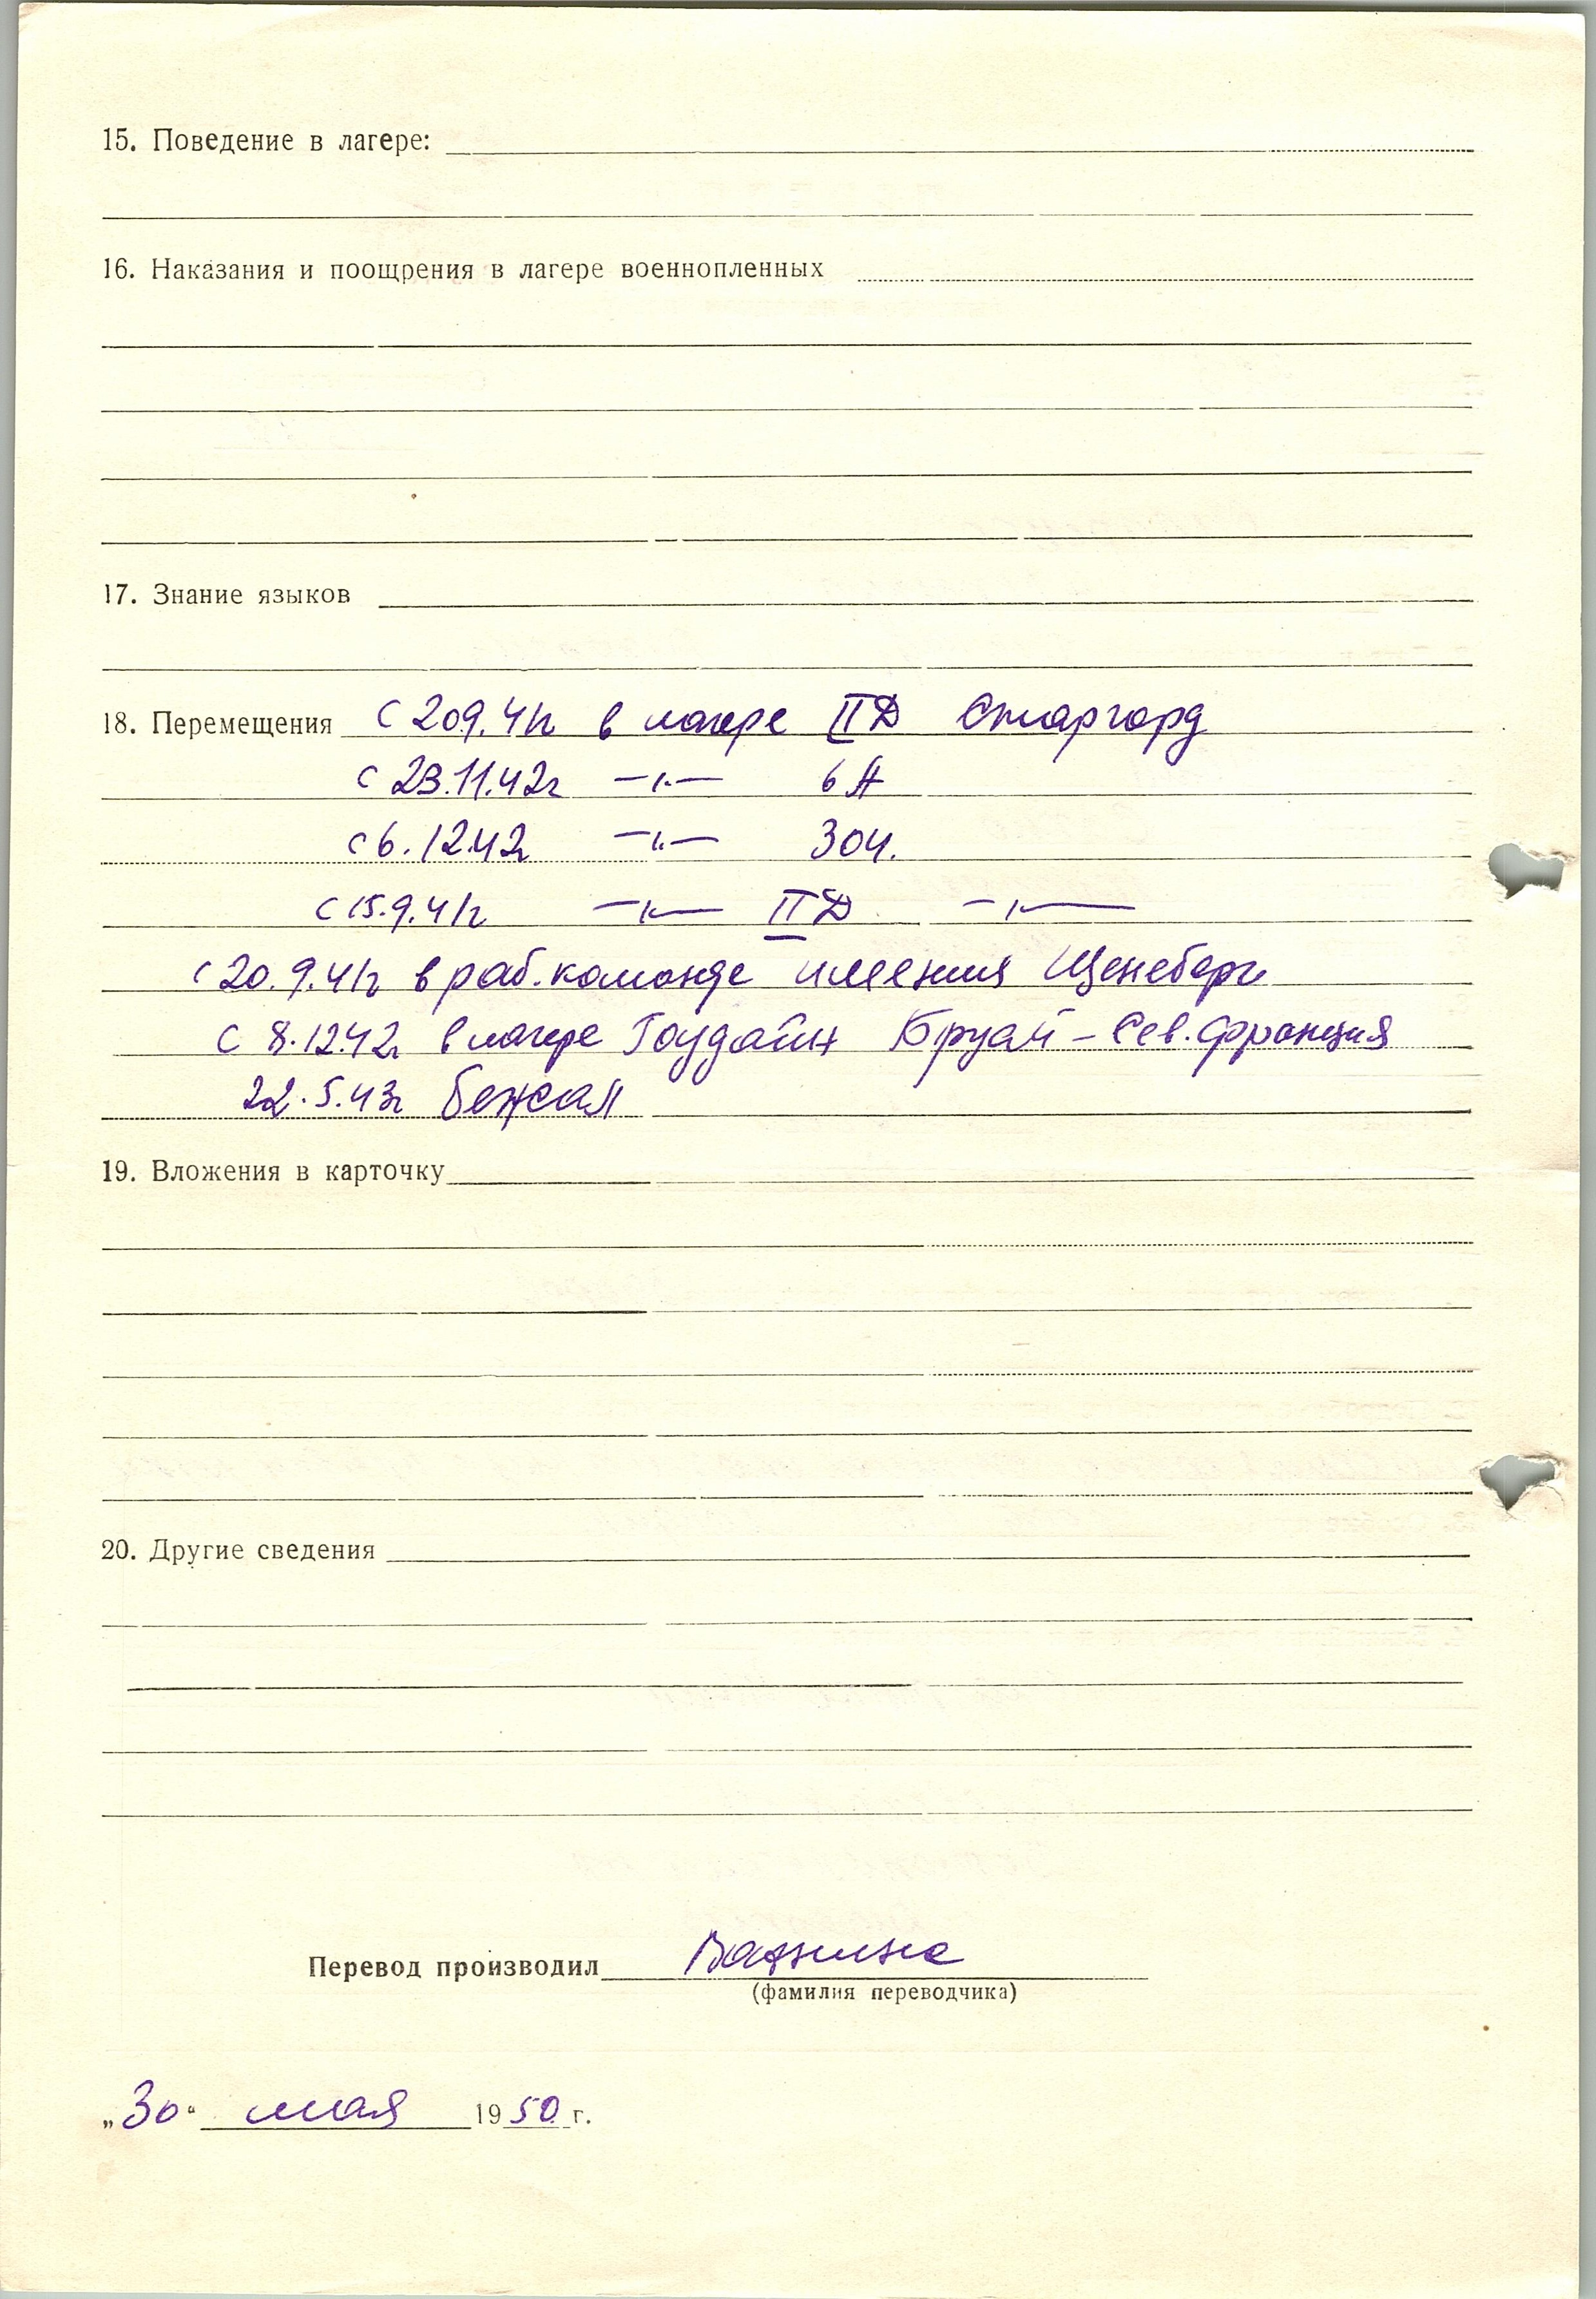 15. Поведение в лагере:
16. Наказания и поощрения в лагере военнопленных
17. Знание языков
18. Перемещения с 20.9.41г в лагере IIД Старгард
с 23.11.42г —„— 6А
с 6.12.42г —„— 304.
с 15.9.41г —„— IIД —„—
с 20.9.41г в раб. команде имения Щенеберг
с 8.12.42г в лагере Гоудайн Бруай – Сев. Франция
22.5.43г бежал
19. Вложения в карточку
20. Другие сведения
Перевод производил
(фамилия переводчика)
„30“ мая 1950 г.